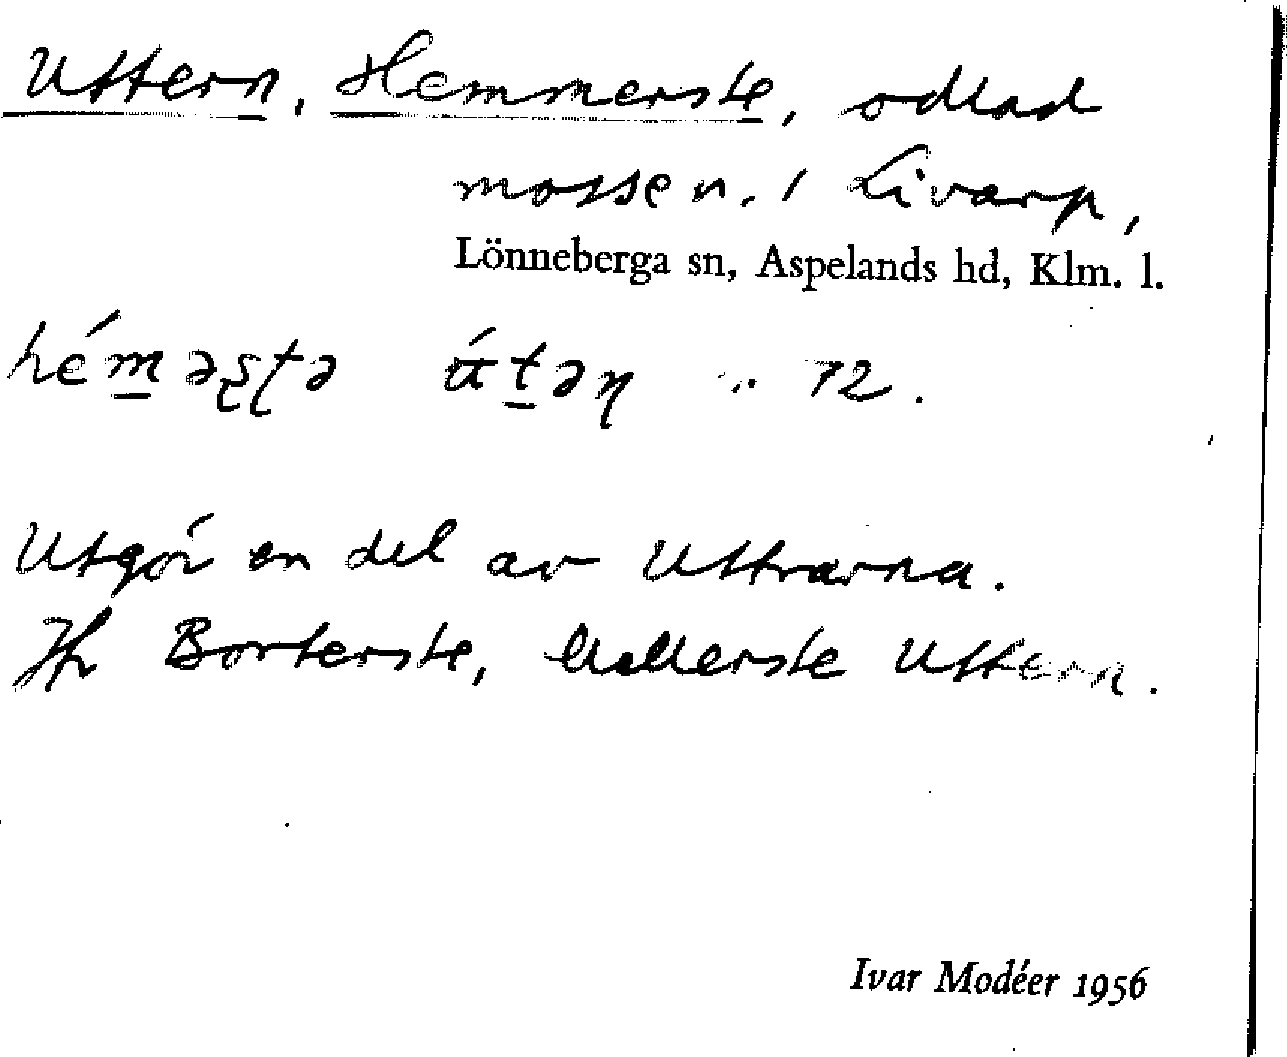 Uttern, Hemmerste, odlad
mosse n. i Livarp,
Lönneberga sn, Aspelands hd, Klm. l.
72.
Utgör en del av Uttrarna.
Jfr Borterste, Mellerste Uttern.
Ivar Modéer 1956